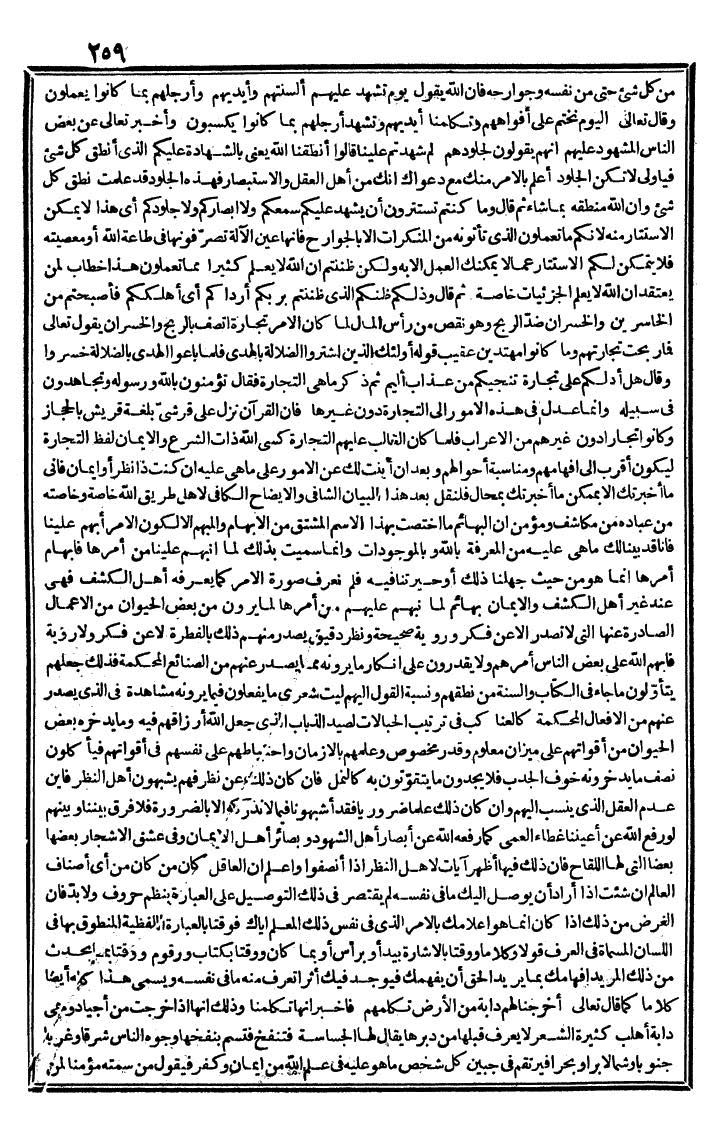 ٢٥٩
من كل شئ حتى من نفسه وجوارحه فان الله يقول يوم تشهد عليهم ألسنتهم وأيديهم وأرجلهم بما كانوا يعملون
وقال تعالى اليوم نختم على أفواههم وتكلمنا أيديهم وتشهد أرجلهم بما كانوا يكسبون وأخبر تعالى عن بعض
الناس المشهود عليهم انهم يقولون لجلودهم لم شهدتم علينا قالوا أنطقنا الله يعنى بالشهادة عليكم الذى أنطق كل شئ
فيا ولى لا تكن الجلود أعلم بالامر منك مع دعواك انك من أهل العقل والاستبصار فهذه الجلود قد علمت نطق كل
شئ وان الله منطقه بما شاء ثم قال وما كنتم تستترون أن يشهد عليكم سمعكم ولا ابصاركم ولا جلودكم أى هذا لا يمكن
الاستتار منه لانكم ما تعملون الذى تأتونه من المنكرات الا بالجوارح فانها عين الآلة تصرّفونها فى طاعة الله أو معصيته
فلا يتمكن لكم الاستتار عما لا يمكنك العمل الا به ولكن ظننتم ان الله لا يعلم كثيرا مما تعملون هذا خطاب لمن
يعتقد ان الله لا يعلم الجزئيات خاصة ثم قال وذلكم ظنكم الذى ظننتم بربكم أرداكم أى أهلككم فأصبحتم من
الخاسرين والخسران ضدّ الربح وهو نقص من رأس المال لما كان الامر تجارة اتصف بالربح والخسران يقول تعالى
فما ربحت تجارتهم وما كانوا مهتدين عقيب قوله أولئك الذين اشتروا الضلالة بالهدى فلما باعوا الهدى بالضلالة خسروا
وقال هل أدلكم على تجارة تنجيكم من عذاب أليم ثم ذكر ما هى التجارة فقال تؤمنون بالله ورسوله وتجاهدون
فى سبيله وانما عدل فى هذه الامور الى التجارة دون غيرها فان القرآن نزل على قرشىّ بلغة قريش بالحجاز
وكانوا تجارا دون غيرهم من الاعراب فلما كان الغالب عليهم التجارة كسى الله ذات الشرع والايمان لفظ التجارة
ليكون أقرب الى افهامهم ومناسبة أحوالهم وبعد ان أبنت لك عن الامور على ماهى عليه ان كنت ذا نظر أو ايمان فانى
ما أخبرتك الا بممكن ما أخبرتك بمحال فلنقل بعد هذا البيان الشافى والايضاح الكافى لاهل طريق الله خاصة وخاصته
من عباده من مكاشف ومؤمن ان البهائم ما اختصت بهذا الاسم المشتق من الابهام والمبهم الا لكون الامر أبهم علينا
فانا قد بينا لك ماهى عليه من المعرفة بالله وبالموجودات وانما سميت بذلك لما انبهم علينا من أمرها فابهام
أمرها انما هو من حيث جهلنا ذلك أو حيرتنا فيه فلم نعرف صورة الامر كما يعرفه أهل الكشف فهى
عند غير أهل الكشف والايمان بهائم لما نبهم عليهم من أمرها لما يرون من بعض الحيوان من الاعمال
الصادرة عنها التى لا تصدر الا عن فكر وروية صحيحة ونظر دقيق يصدر منهم ذلك بالفطرة لا عن فكر ولا روية
فابهم الله على بعض الناس أمرهم ولا يقدرون على انكار ما يرونه مما يصدر عنهم من الصنائع المحكمة فذلك جعلهم
يتأوّلون ما جاء فى الكتاب والسنة من نطقهم ونسبة القول اليهم ليت شعرى ما يفعلون فيما يرونه مشاهدة فى الذى يصدر
عنهم من الافعال المحكمة كالعنا كب فى ترتيب الحبالات لصيد الذباب الذى جعل الله أرزاقهم فيه وما يدخره بعض
الحيوان من أقواتهم على ميزان معلوم وقدر مخصوص وعلمهم بالازمان واحتياطهم على نفسهم فى أقواتهم فيأكلون
نصف ما يدخرونه خوف الجدب فلا يجدون ما يتقوّتون به كالنمل فان كان ذلك عن نظر فهم يشبهون أهل النظر فاين
عدم العقل الذى ينسب اليهم وان كان ذلك علما ضروريا فقد أشبهونا فيما لا ندركه الا بالضرورة فلا فرق بيننا وبينهم
لو رفع الله عن أعيننا غطاء العمى كما رفعه الله عن أبصار أهل الشهود وبصائر أهل الايمان وفى عشق الاشجار بعضها
بعضا التى لها اللقاح فان ذلك فيها أظهر آيات لاهل النظر اذا أنصفوا واعلم ان العاقل كان من كان من أى أصناف
العالم ان شئت اذا أراد أن يوصل اليك ما فى نفسه لم يقتصر فى ذلك التوصيل على العبارة بنظم حروف ولا بد فان
الغرض من ذلك اذا كان انما هو اعلامك بالامر الذى فى نفس ذلك المعلم اياك فوقتا بالعبارة اللفظية المنطوق بها فى
اللسان المسماة فى العرف قولا وكلاما ووقتا بالاشارة بيد أو برأس أو بما كان ووقتا بكتاب ورقوم ووقتا بما يحدث
من ذلك المريد افهامك بما يريد الحق أن يفهمك فيوجد فيك أثرا تعرف منه ما فى نفسه ويسمى هذا كله أيضا
كلاما كما قال تعالى أخرجنا لهم دابة من الأرض تكلمهم فاخبر انها تكلمنا وذلك انها اذا خرجت من أجياد وهى
دابة أهلب كثيرة الشعر لا يعرف قبلها من دبرها يقال لها الجساسة فتنفخ فتسم بنفخها وجوه الناس شرقا وغربا
جنوبا وشمالا برا وبحرا فيرتقم فى جبين كل شخص ما هو عليه فى علم الله من ايمان وكفر فيقول من سمته مؤمنا لمن